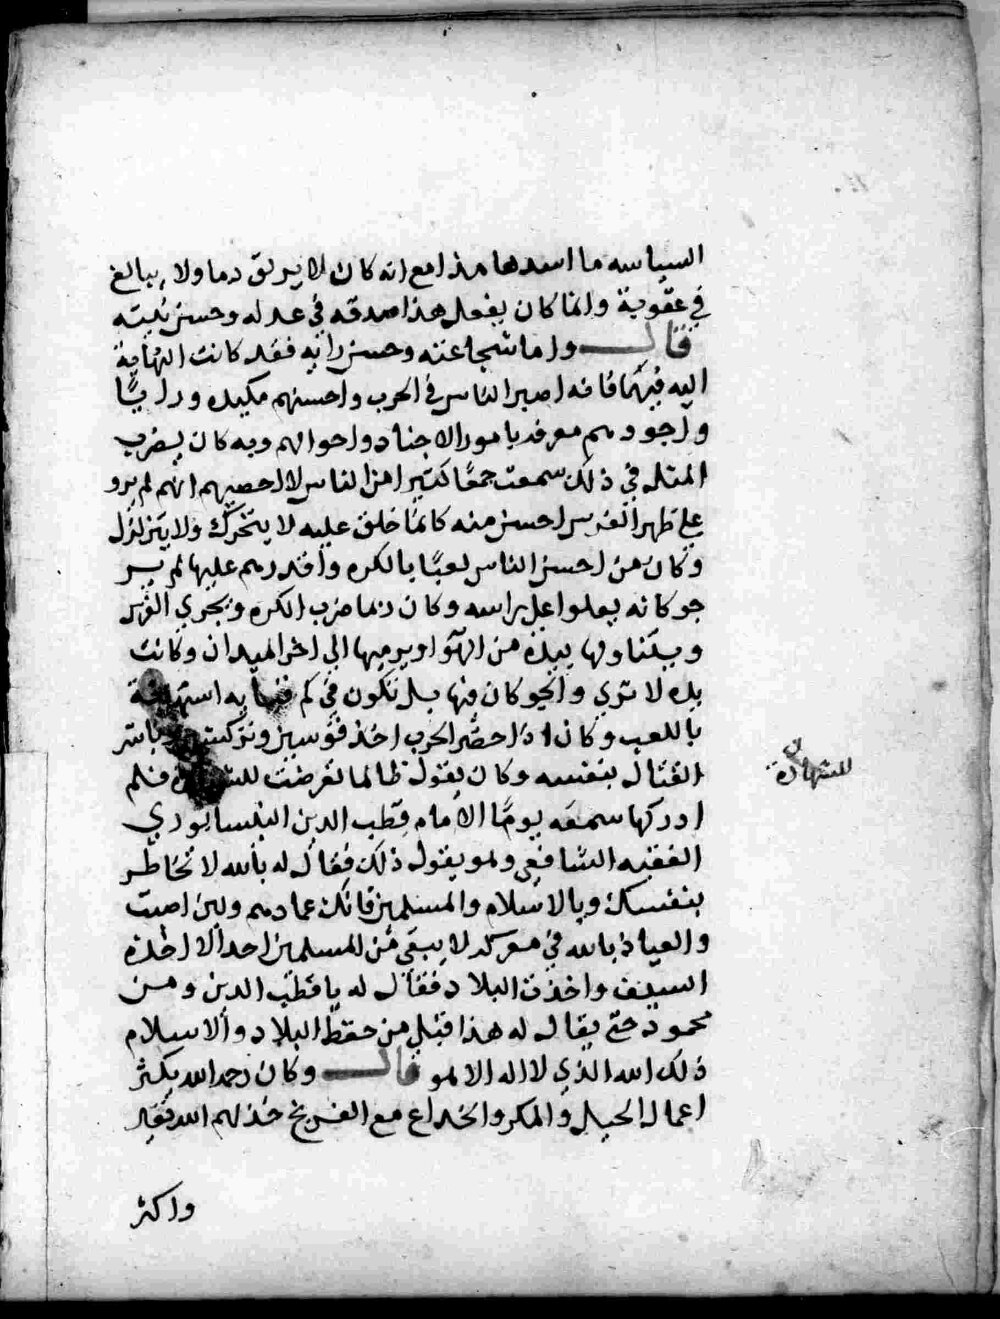 السياسه ما اسدها هذا مع انه كان لا يريق دما ولا يبالغ
في عقوبة وانما كان يفعل هذا صدقه في عدله وحسن نيته
قال واما شجاعته وحسن رايه فقد كانت النهاية
اليه فيهما فانه اصبر الناس في الحرب واحسنهم مكيده ورايًا
واجودهم معرفه بامور الاجناد واحوالهم وبه كان يضرب
المثل في ذلك سمعت جمعًا كثيرا من الناس لا احصيهم انهم لم يرو
على ظهر الفرس احسن منه كانما خلق عليه لا يتحرك ولا يتزلزل
وكان من احسن الناس لعبًا بالكره واقدرهم عليها لم ير
جوكانه يعلوا على راسه وكان ربما ضرب الكره ويجري الفرس
ويتناولها بيده من الهوا ويرميها الى اخر الميدان وكانت
يده لا تري والجوكان فيها بل تكون في كم قبايه استهانة
باللعب وكان اذا حضر الحرب اخذ قوسين وتركشين وباشر
القتال بنفسه وكان يقول طالما تعرضت للشهادة فلم
للشهادة
ادركها سمعه يومًا الامام قطب الدين النيسابوري
الفقيه الشافعي وهو يقول ذلك فقال له بالله لا تخاطر
بنفسك وبالاسلام والمسلمين فانك عمادهم ولئن اصبت
والعياذ بالله في معركه لا يبقى من المسلمين احد الا اخذه
السيف واخذت البلاد فقال له يا قطب الدين ومن
محمود حتى يقال له هذا قبلي من حفظ البلاد والاسلام
ذلك الله الذي لا اله الا هو قال وكان رحمه الله يكثر
اعمال الحيل والمكر والخداع مع الفرنج خذلهم الله
واكثر